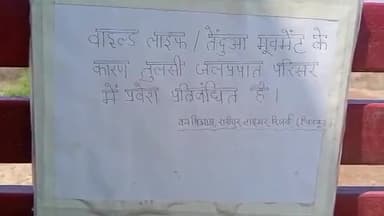 वाइल्ड लाइफ / तेंदुआ मूवमेंट के
कारण तुलसी जलप्रपात परिसर
में प्रवेश प्रतिबंधित है।
वन विभाग, रानीपुर टाइगर रिजर्व (चित्रकूट)